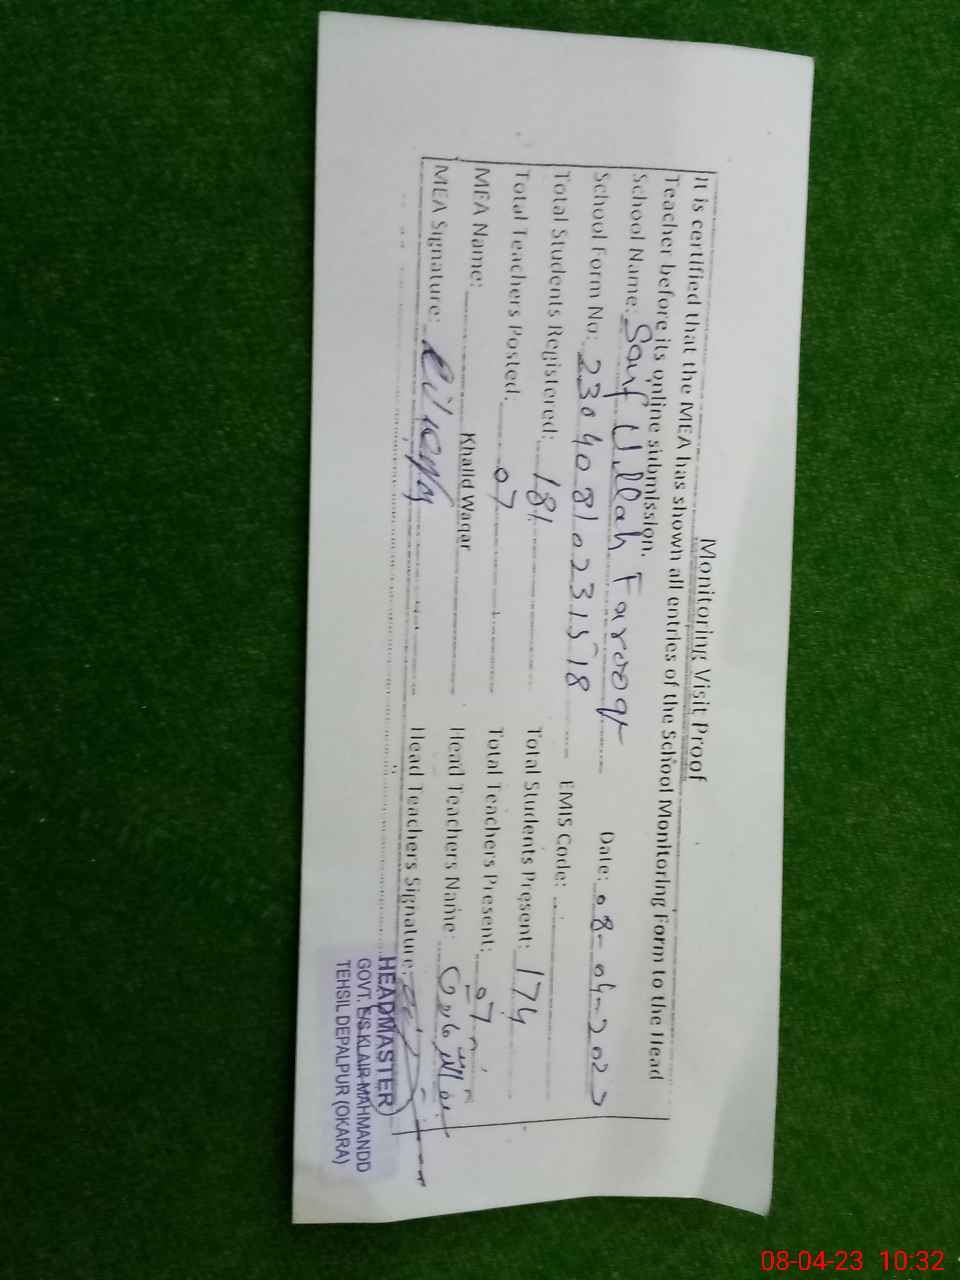 Monitoring Visit Proof
It is certified that the MEA has shown all entries of the School Monitoring Form to the Head
Teacher before its online submission.
School Name: Saif Ullah Farooq Date: 08-04-202
School Form No: 23040810231518 EMIS Code:
Total Students Registered: 181 Total Students Present: 174
Total Teachers Posted: 07 Total Teachers Present: 07
MEA Name: Khalid Waqar Head Teachers Name:
MEA Signature: Head Teachers Signature:
HEADMASTER
GOVT. E/S KLAIR MAHMANDD
TEHSIL DEPALPUR (OKARA)
08-04-23 10:32